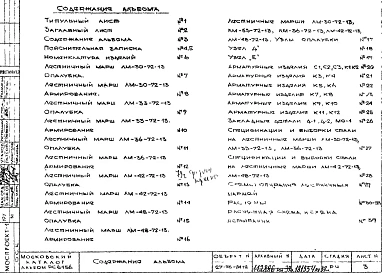 Содержание альбома
Титульный лист №1
Заглавный лист №2
Содержание альбома №3
Пояснительная записка №4,5
Номенклатура изделий №6
Лестничный марш ЛМ-30-72-13.
Опалубка. №7
Лестничный марш ЛМ-30-72-13.
Армирование. №8
Лестничный марш ЛМ-33-72-13.
Опалубка №9
Лестничный марш ЛМ-33-72-13.
Армирование №10
Лестничный марш ЛМ-36-72-13.
Опалубка №11
Лестничный марш ЛМ-36-72-13.
Армирование №12
Лестничный марш ЛМ-42-72-13.
Опалубка №13
Лестничный марш ЛМ-42-72-13.
Армирование №14
Лестничный марш ЛМ-48-72-13.
Опалубка №15
Лестничный марш ЛМ-48-72-13.
Армирование №16
Лестничные марши ЛМ-30-72-13,
ЛМ-33-72-13, ЛМ-36-72-13, ЛМ-42-72-13,
ЛМ-48-72-13. Узлы опалубки №17
Узел „Д" №18
Узел „Е" №19
Арматурные изделия №20
Арматурные изделия №21
Арматурные изделия №22
Арматурные изделия К7, К8 №23
Арматурные изделия К9, К10 №24
Арматурные изделия К11, К12 №25
Закладные детали №26
Спецификации и выборки стали
на лестничные марши ЛМ-30-72-13,
ЛМ-33-72-13, ЛМ-36-72-13. №27
Спецификации и выборки стали
на лестничные марши ЛМ-42-72-13,
ЛМ-48-72-13. №28
Схемы опирания лестничных
маршей
Расчетная схема и схема
испытания
Московский каталог
Альбом РС6158
Содержание альбома
Объект №
Архивный №
Дата
Стадия
Лист №
3
Моспроект-1